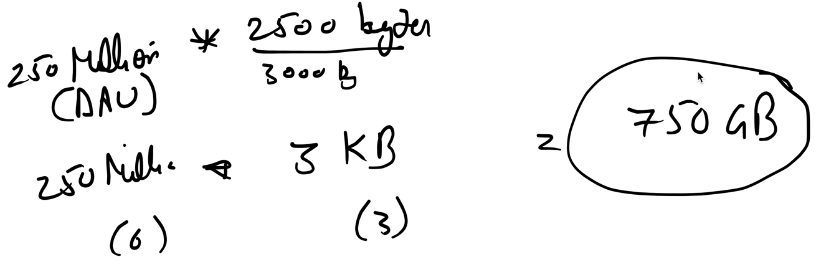 250 Million * 2500 bytes
(DAU) 3000 b
250 Milli * 3 KB = 750 GB
(6) (3)